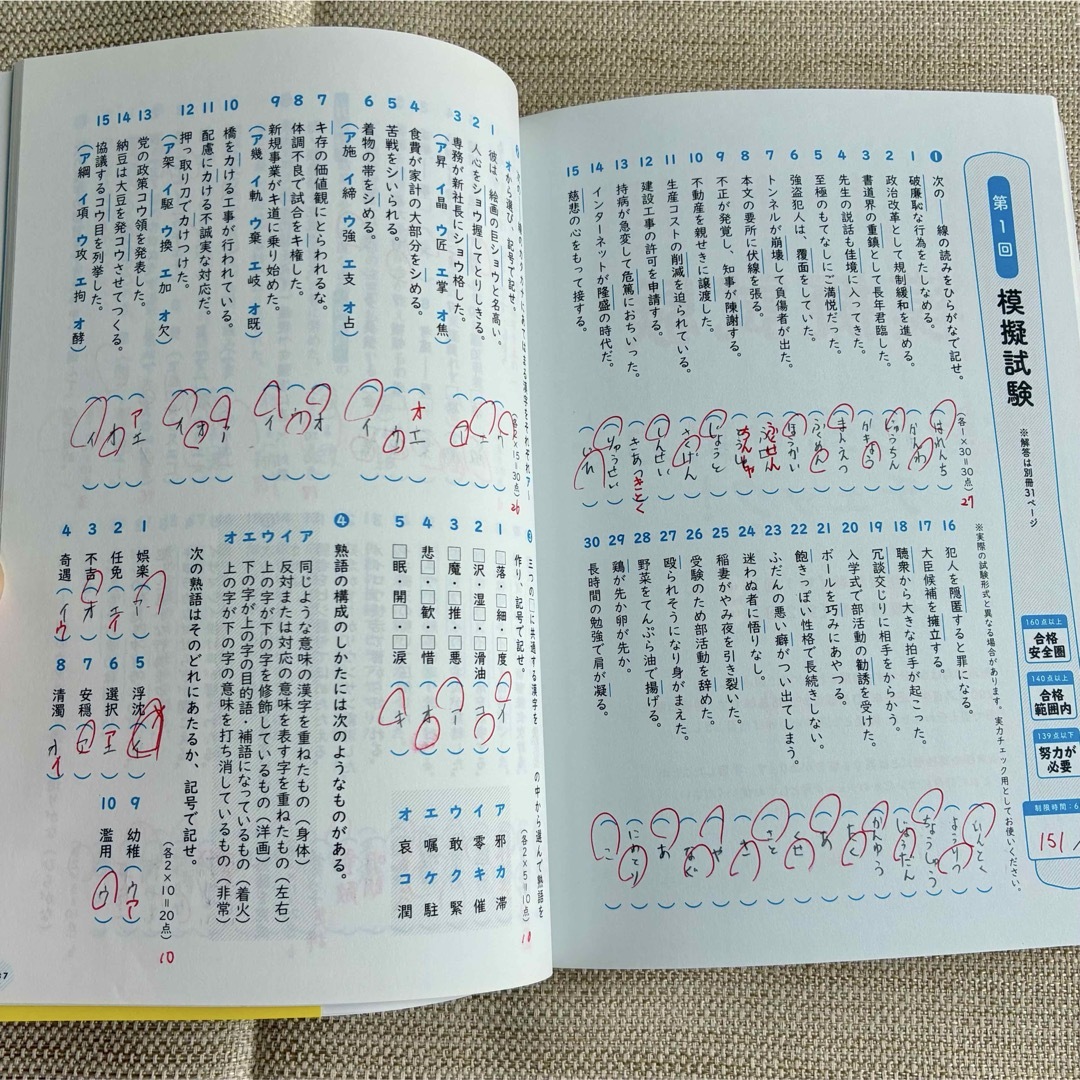 第1回
模擬試験
※解答は別冊31ページ
※実際の試験形式と異なる場合があります。実力チェック用としてお使いください。
160点以上
合格
安全圏
140点以上
合格
範囲内
139点以下
努力が
必要
制限時間:6
151/
❶ 次の――線の読みをひらがなで記せ。
(各1×30=30点)
27
1 破廉恥な行為をたしなめる。
(はれんち)
2 政治改革として規制緩和を進める。
(かんわ)
3 書道界の重鎮として長年君臨した。
(じゅうちん)
4 先生の説話も佳境に入ってきた。
(かきょう)
5 至極のもてなしにご満悦だった。
(まんえつ)
6 強盗犯人は、覆面をしていた。
(ふくめん)
7 トンネルが崩壊して負傷者が出た。
(ほうかい)
8 本文の要所に伏線を張る。
ふくせん
9 不正が発覚し、知事が陳謝する。
10 不動産を親せきに譲渡した。
(じょうと)
11 生産コストの削減を迫られている。
(さくげん)
12 建設工事の許可を申請する。
(しんせい)
13 持病が急変して危篤におちいった。
きとく
14 インターネットが隆盛の時代だ。
(りゅうせい)
15 慈悲の心をもって接する。
16 犯人を隠匿すると罪になる。
(いんとく)
17 大臣候補を擁立する。
(ようりつ)
18 聴衆から大きな拍手が起こった。
(ちょうしゅう)
19 冗談交じりに相手をからかう。
(じょうだん)
20 入学式で部活動の勧誘を受けた。
(かんゆう)
21 ボールを巧みにあやつる。
(たく)
22 飽きっぽい性格で長続きしない。
(あ)
23 ふだんの悪い癖がつい出てしまう。
(くせ)
24 迷わぬ者に悟りなし。
(さと)
25 稲妻がやみ夜を引き裂いた。
(さ)
26 受験のため部活動を辞めた。
(や)
27 殴られそうになり身がまえた。
(なぐ)
28 野菜をてんぷら油で揚げる。
(あ)
29 鶏が先か卵が先か。
(にわとり)
30 長時間の勉強で肩が凝る。
(こ)
オから選び、記号で記せ。
(各2×15=30点)
1 彼は、絵画の巨ショウと名高い。
2 人心をショウ握してとりしきる。
3 専務が新社長にショウ格した。
(ア昇 イ晶 ウ匠 エ掌 オ焦)
4 食費が家計の大部分をシめる。
5 苦戦をシいられる。
6 着物の帯をシめる。
(ア施 イ締 ウ強 エ支 オ占)
7 キ存の価値観にとらわれるな。
8 体調不良で試合をキ権した。
9 新規事業がキ道に乗り始めた。
(ア幾 イ軌 ウ棄 エ岐 オ既)
10 橋をカける工事が行われている。
11 配慮にカける不誠実な対応だ。
12 押っ取り刀でカけつけた。
(ア架 イ駆 ウ換 エ加 オ欠)
13 党の政策コウ領を発表した。
14 納豆は大豆を発コウさせてつくる。
15 協議するコウ目を列挙した。
(ア綱 イ項 ウ攻 エ拘 オ酵)
❸ 三つの□に共通する漢字を
の中から選んで熟語を
作り、記号で記せ。
(各2×5=10点)
10
1 □落・□細・□度
(イ)
2 □沢・湿□・□滑油
(コ)
3 □魔・□推・□悪
(ア)
4 悲□・□歓・□惜
(オ)
5 □眠・開□・□涙
(キ)
ア 邪 カ 滞
イ 零 キ 催
ウ 敢 ク 緊
エ 嘱 ケ 駐
オ 哀 コ 潤
❹ 熟語の構成のしかたには次のようなものがある。
ア 同じような意味の漢字を重ねたもの(身体)
イ 反対または対応の意味を表す字を重ねたもの(左右)
ウ 上の字が下の字を修飾しているもの(洋画)
エ 下の字が上の字の目的語・補語になっているもの(着火)
オ 上の字が下の字の意味を打ち消しているもの(非常)
次の熟語はそのどれにあたるか、記号で記せ。
(各2×10=20点)
10
1 娯楽
2 任免
3 不吉(オ)
4 奇遇
5 浮沈
6 選択
7 安穏
8 清濁
9 幼稚
10 濫用(ウ)